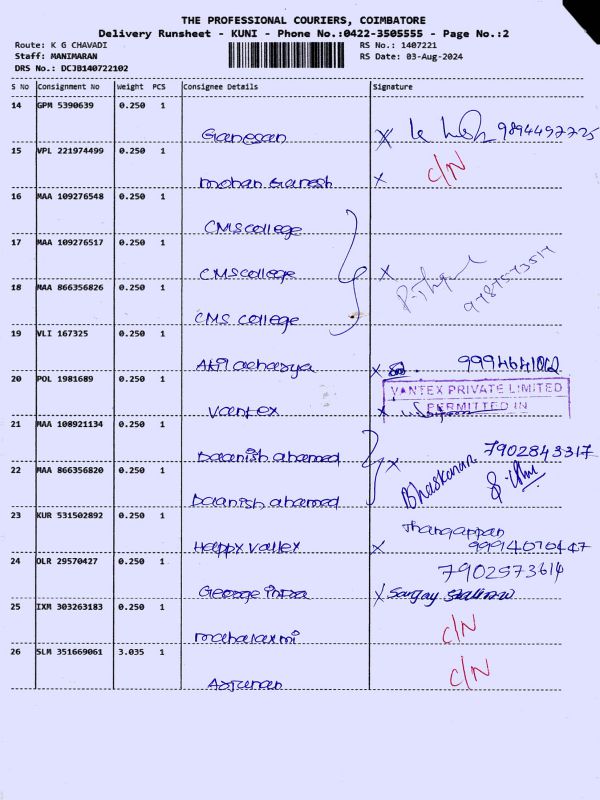 THE PROFESSIONAL COURIERS, COIMBATORE
Delivery Runsheet - KUNI - Phone No.:0422-3505555 - Page No.:2
Route: K G CHAVADI
Staff: MANIMARAN
DRS No.: DCJB140722102
RS No.: 1407221
RS Date: 03-Aug-2024
S No Consignment No Weight PCS Consignee Details Signature
14 GPM 5390639 0.250 1
Ganesan X 9894492225
15 VPL 221974499 0.250 1
mohan Ganesh X C/N
16 MAA 109276548 0.250 1
CMS college
17 MAA 109276517 0.250 1
CMS college X
18 MAA 866356826 0.250 1
CMS college
19 VLI 167325 0.250 1
Akil acharya X 9994641062
20 POL 1981689 0.250 1
VANTEX PRIVATE LIMITED
PERMITTED IN
Vantex X
21 MAA 108921134 0.250 1
Daanish ahamed X 7902843317
22 MAA 866356820 0.250 1
Bhaskaran
Daanish ahamed
23 KUR 531502892 0.250 1
Thangappan
Happy valley X 99914070447
24 OLR 29570427 0.250 1
7902573614
George X Sanjay
25 IXM 303263183 0.250 1
C/N
mahalaxmi
26 SLM 351669061 3.035 1
C/N
Arjunan